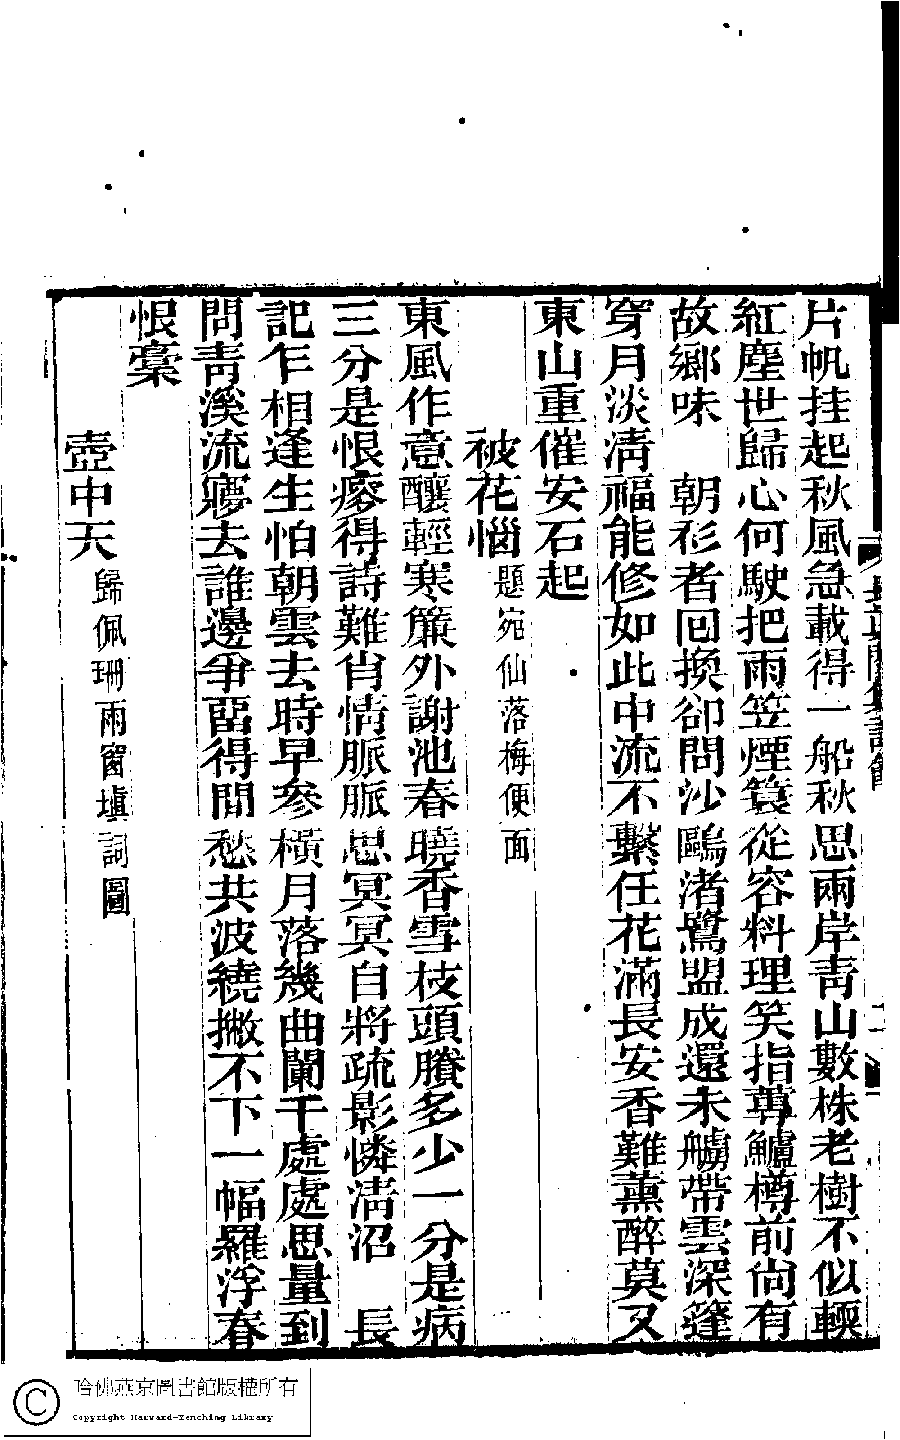 片帆挂起秋風急載得一船秋思兩岸靑山數株老樹不似輭
紅塵世歸心何駛把雨笠煙簑從容料理笑指蓴鱸樽前尙有
故鄉味　朝衫者回換卻問沙鷗渚鷺盟成還未艣帶雲深篷
穿月淡淸福能修如此中流不繫任花滿長安香難薰醉莫又
東山重催安石起
被花惱題宛仙落梅便面
東風作意釀輕寒簾外謝池春曉香雪枝頭賸多少一分是病
三分是恨瘮得詩難肖情脈脈思冥冥自將疏影憐淸沼　長
記乍相逢生怕朝雲去時早參橫月落幾曲闌干處處思量到
問靑溪流寢去誰邊爭畱得閒愁共波繞撇不下一幅羅浮春
恨藁
壺中天歸佩珊雨窗塡詞圖
哈佛燕京圖書館版權所有
Copyright Harvard-Yenching Library